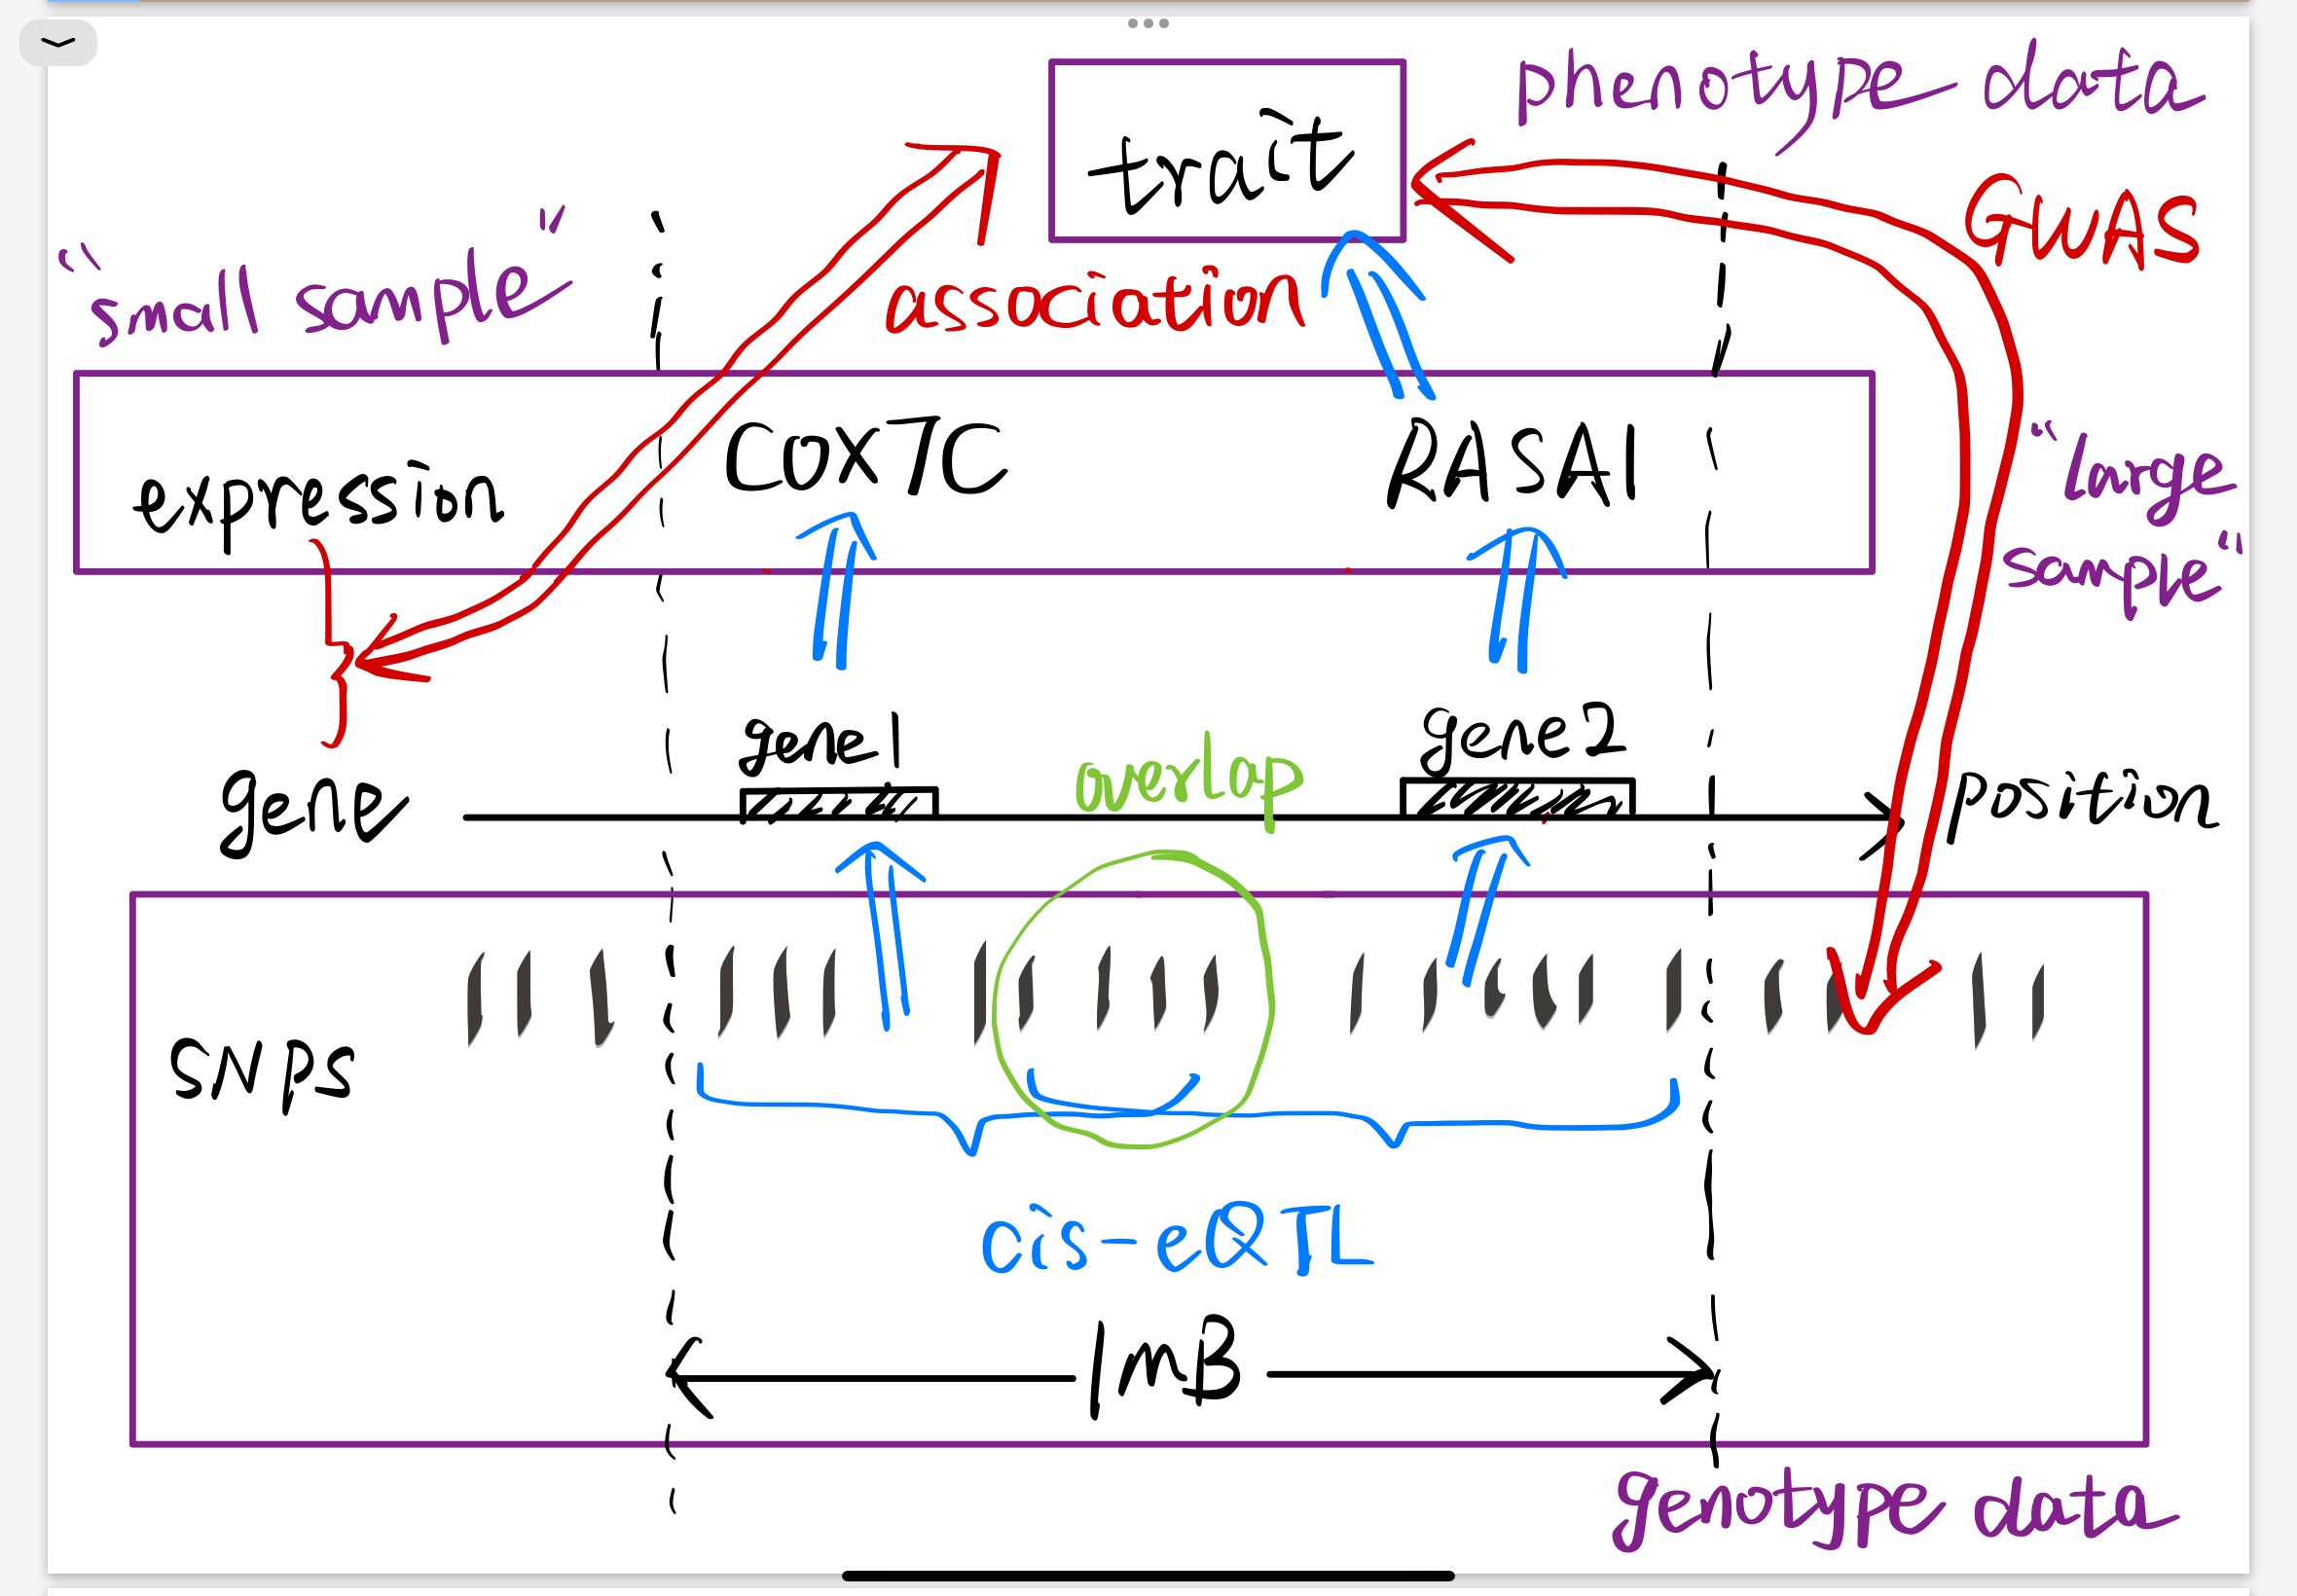 phenotype data
trait
GWAS
"small sample"
association
expression
COXTC
RASA1
"large
sample"
gene
gene1
overlap
gene2
position
SNPs
cis-eQTL
1mB
genotype data